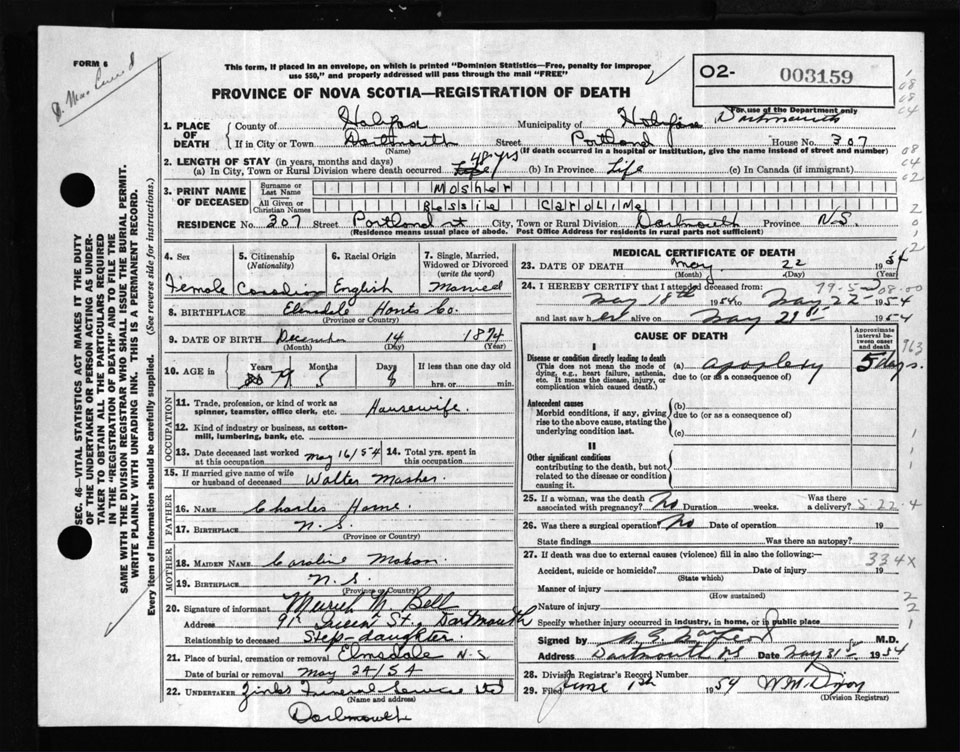 FORM 6
This form, if placed in an envelope, on which is printed "Dominion Statistics—Free, penalty for improper
use $50," and properly addressed will pass through the mail "FREE"
O2- 003159
PROVINCE OF NOVA SCOTIA—REGISTRATION OF DEATH
For use of the Department only
1. PLACE OF DEATH { County of Halifax Municipality of Halifax Dartmouth
If in City or Town Dartmouth Street Portland House No. 307
(Name) (If death occurred in a hospital or institution, give the name instead of street and number)
2. LENGTH OF STAY (in years, months and days)
(a) In City, Town or Rural Division where death occurred 48 yrs (b) In Province Life (c) In Canada (if immigrant)
3. PRINT NAME OF DECEASED { Surname or Last Name Mosher
All Given or Christian Names Bessie Caroline
RESIDENCE No. 307 Street Portland st City, Town or Rural Division Dartmouth Province N.S.
(Residence means usual place of abode. Post Office Address for residents in rural parts not sufficient)
4. Sex 5. Citizenship (Nationality) 6. Racial Origin 7. Single, Married, Widowed or Divorced (write the word)
Female Canadian English Married
8. BIRTHPLACE Elmsdale Hants Co.
(Province or Country)
9. DATE OF BIRTH December 14 1874
(Month) (Day) (Year)
10. AGE of Years 79 Months 5 Days 8 If less than one day old
hrs. or min.
OCCUPATION
11. Trade, profession, or kind of work as spinner, teamster, office clerk, etc. Housewife.
12. Kind of industry or business, as cotton-mill, lumbering, bank, etc.
13. Date deceased last worked at this occupation May 16/54 14. Total yrs. spent in this occupation
15. If married give name of wife or husband of deceased Walter Mosher
FATHER
16. NAME Charles Horne
17. BIRTHPLACE N.S.
(Province or Country)
MOTHER
18. MAIDEN NAME Caroline
19. BIRTHPLACE N.S.
(Province or Country)
20. Signature of informant M. Bell
Address Queen St., Dartmouth
Relationship to deceased Step-daughter.
21. Place of burial, cremation or removal Elmsdale N-S
Date of burial or removal May 24/54
22. UNDERTAKER Zinks Funeral Service Ltd
(Name and address)
Dartmouth
MEDICAL CERTIFICATE OF DEATH
23. DATE OF DEATH May 22 1954
(Month) (Day) (Year)
24. I HEREBY CERTIFY that I attended deceased from:
May 18th 1954 to May 22 1954
and last saw her alive on May 21st 1954
CAUSE OF DEATH
Approximate interval between onset and death
I
Disease or condition directly leading to death
(This does not mean the mode of dying, e.g., heart failure, asthenia, etc. It means the disease, injury, or complication which caused death.)
(a) apoplexy 5 days.
due to (or as a consequence of)
Antecedent causes
Morbid conditions, if any, giving rise to the above cause, stating the underlying condition last.
(b)
due to (or as a consequence of)
(c)
II
Other significant conditions
contributing to the death, but not related to the disease or condition causing it.
25. If a woman, was the death associated with pregnancy? No Duration weeks. Was there a delivery?
5-22-4
26. Was there a surgical operation? No Date of operation 19
State findings Was there an autopsy?
27. If death was due to external causes (violence) fill in also the following:—
334X
Accident, suicide or homicide? Date of injury 19
(State which)
Manner of injury
(How sustained)
Nature of injury
Specify whether injury occurred in industry, in home, or in public place
Signed by M.D.
Address Dartmouth NS Date May 31st 1954
28. Division Registrar's Record Number
29. Filed June 1st 1954 W.M. Dixon
(Division Registrar)
SEC. 46—VITAL STATISTICS ACT MAKES IT THE DUTY
OF THE UNDERTAKER OR PERSON ACTING AS UNDER-
TAKER TO OBTAIN ALL THE PARTICULARS REQUIRED
IN THE "REGISTRATION OF DEATH" AND TO FILE THE
SAME WITH THE DIVISION REGISTRAR WHO SHALL ISSUE THE BURIAL PERMIT.
WRITE PLAINLY WITH UNFADING INK. THIS IS A PERMANENT RECORD.
Every item of information should be carefully supplied. (See reverse side for instructions.)